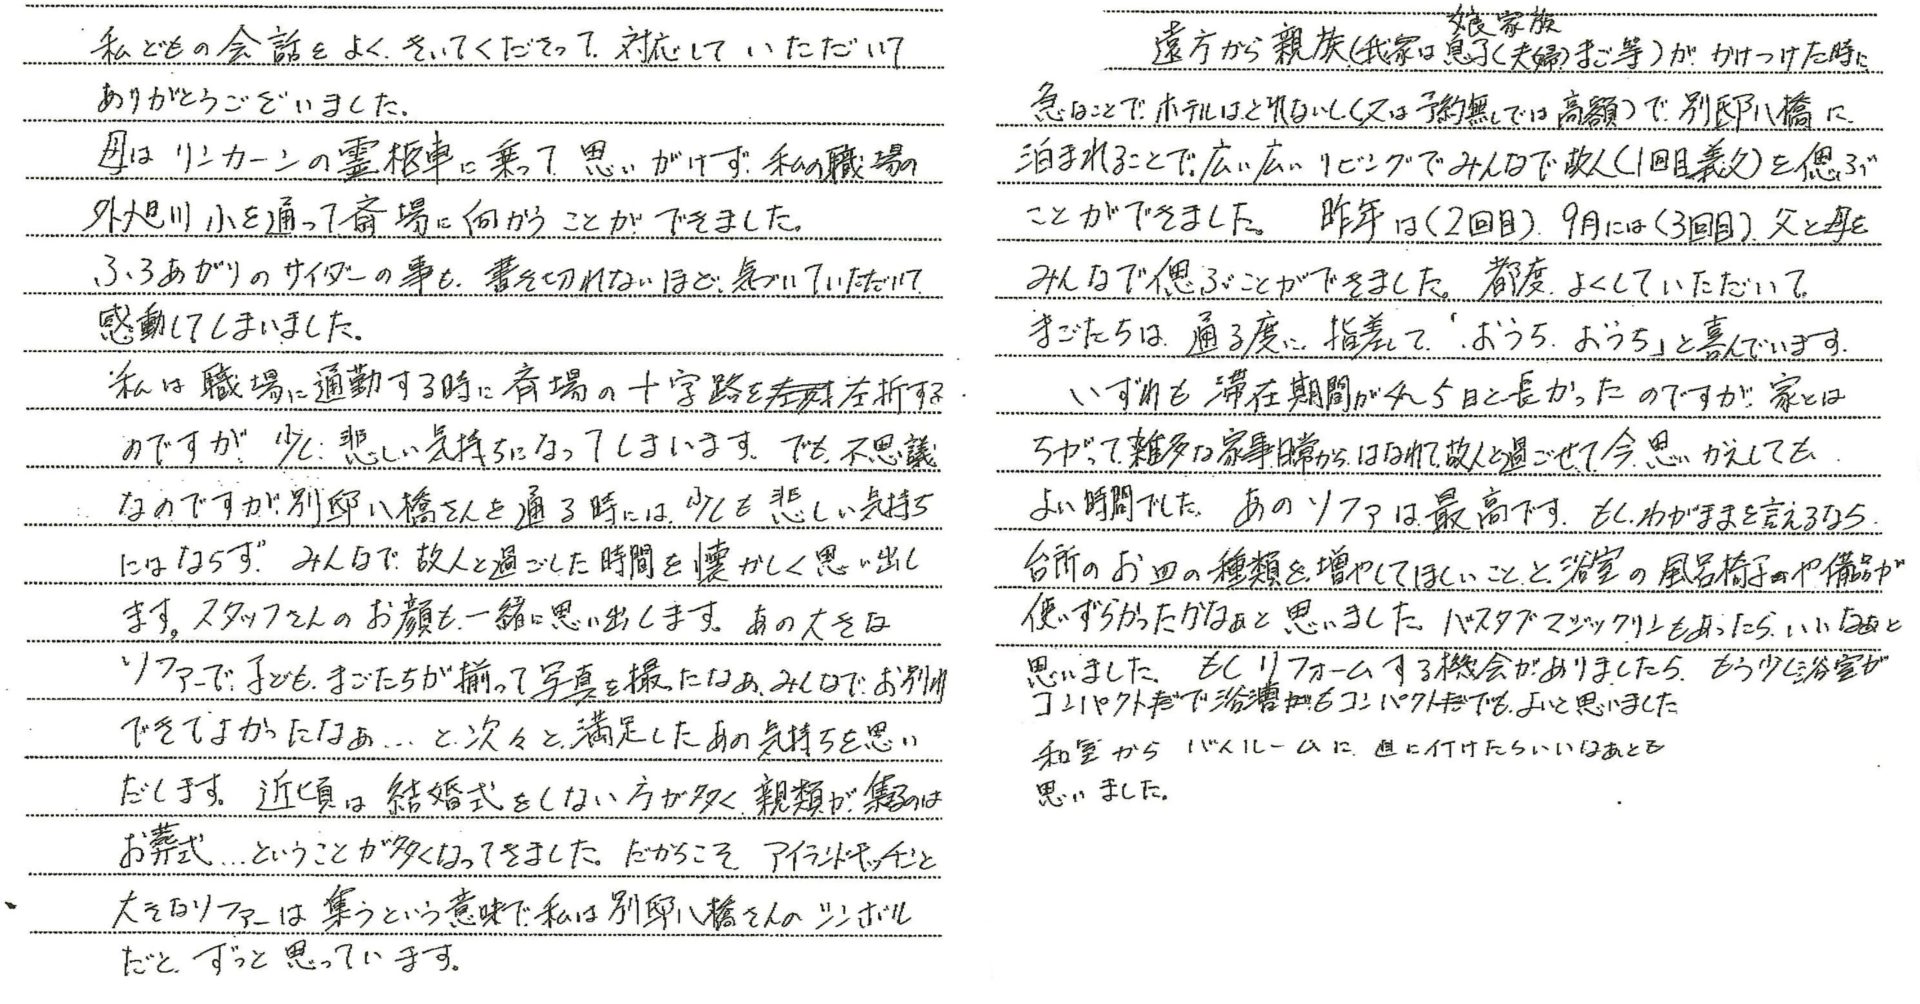 私どもの会話をよく、きいてくださって、対応していただいて
ありがとうございました。
母はリンカーンの霊柩車に乗って、思いがけず、私の職場の
外旭川小を通って斎場に向かうことができました。
ふろあがりのサイダーの事も、書き切れないほど、気づいていただいて
感動してしまいました。
私は職場に通勤する時に斉場の十字路を左折する
のですが、少し、悲しい気持ちになってしまいます。でも、不思議
なのですが、別邸八橋さんを通る時には、少しも悲しい気持ち
にはならず、みんなで、故人と過ごした時間を懐かしく思い出し
ます。スタッフさんのお顔も、一緒に思い出します。あの大きな
ソファーで、子ども、まごたちが揃って写真を撮ったなあ、みんなで、お別れ
できてよかったなぁ…と、次々と、満足したあの気持ちを思い
だします。近頃は結婚式をしない方が多く、親類が集るのは
お葬式…ということが多くなってきました。だからこそ、アイランドキッチンと
大きなソファーは集うという意味で、私は別邸八橋さんのシンボル
だと、ずっと思っています。
遠方から親族(我家は娘家族息子(夫婦)まご等)が、かけつけた時に
急なことで、ホテルはとれないし、(又は予約無しでは高額)で、別邸八橋に
泊まれることで、広い広いリビングでみんなで故人(1回目義父)を偲ぶ
ことができました。昨年は(2回目)、9月には(3回目)、父と母を
みんなで偲ぶことができました。都度、よくしていただいて、
まごたちは、通る度に、指差して、「おうち、おうち」と喜んでいます。
いずれも滞在期間が4、5日と長かったのですが、家とは
ちがって、雑多な家事、日常から、はなれて、故人と過ごせて、今、思いかえしても、
よい時間でした。あのソファは最高です。もし、わがままを言えるなら、
台所のお皿の種類を増やしてほしいことと、浴室の風呂椅子や備品が
使いずらかったかなぁと思いました。バスタブマジックリンもあったら、いいなぁと
思いました。もしリフォームする機会がありましたら、もう少し浴室が
コンパクトで浴漕もコンパクトでも、よいと思いました
和室からバスルームに、直に行けたらいいなぁとも
思いました。